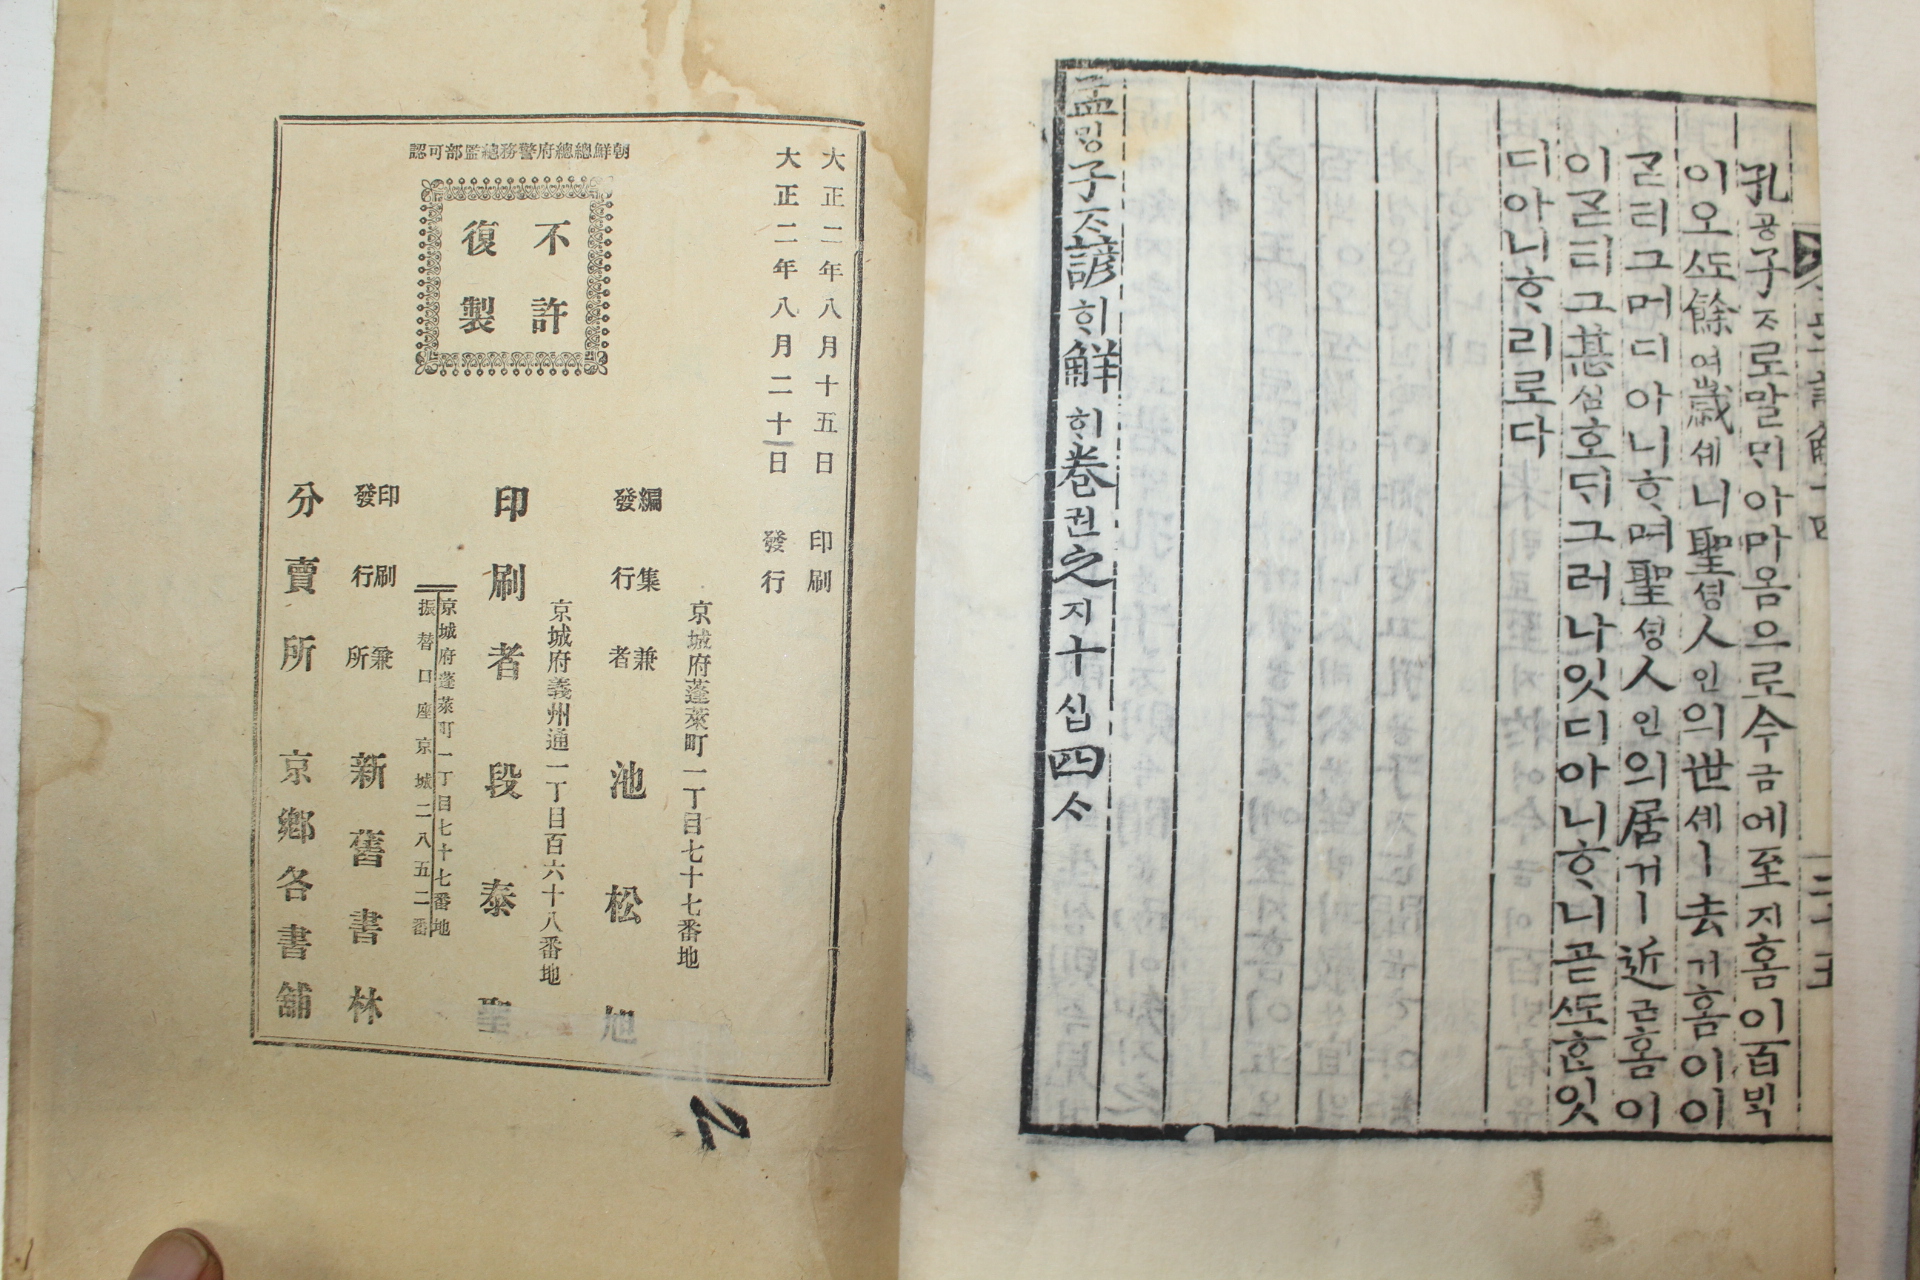 孔공子ᄌᆞ로말ᄆᆡ아마음으로今금에至지홈이百ᄇᆡᆨ
이오ᄯᅩ餘여歲셰니聖셩人인의世셰ㅣ去거홈이이
ᄀᆞᆮ티그머디아니ᄒᆞ며聖셩人인의居거ㅣ近근홈이
이ᄀᆞᆮ티그甚심호ᄃᆡ그러나잇디아니ᄒᆞ니곧ᄯᅩᄒᆞᆫ잇
디아니ᄒᆞ리로다
孟ᄆᆡᆼ子ᄌᆞ諺解ᄒᆡ卷권之지十십四ᄉᆞ
大正二年八月十五日 印刷
大正二年八月二十日 發行
朝鮮總總府警務總監部可認
不許
復製
京城府蓬萊町一丁目七十七番地
編集兼
發行者 池松旭
京城府義州通一丁目百六十八番地
印刷者 段泰聖
京城府蓬萊町一丁目七十七番地
振替口座京城二八五二番
印刷兼
發行所 新舊書林
分賣所 京鄉各書舖
2